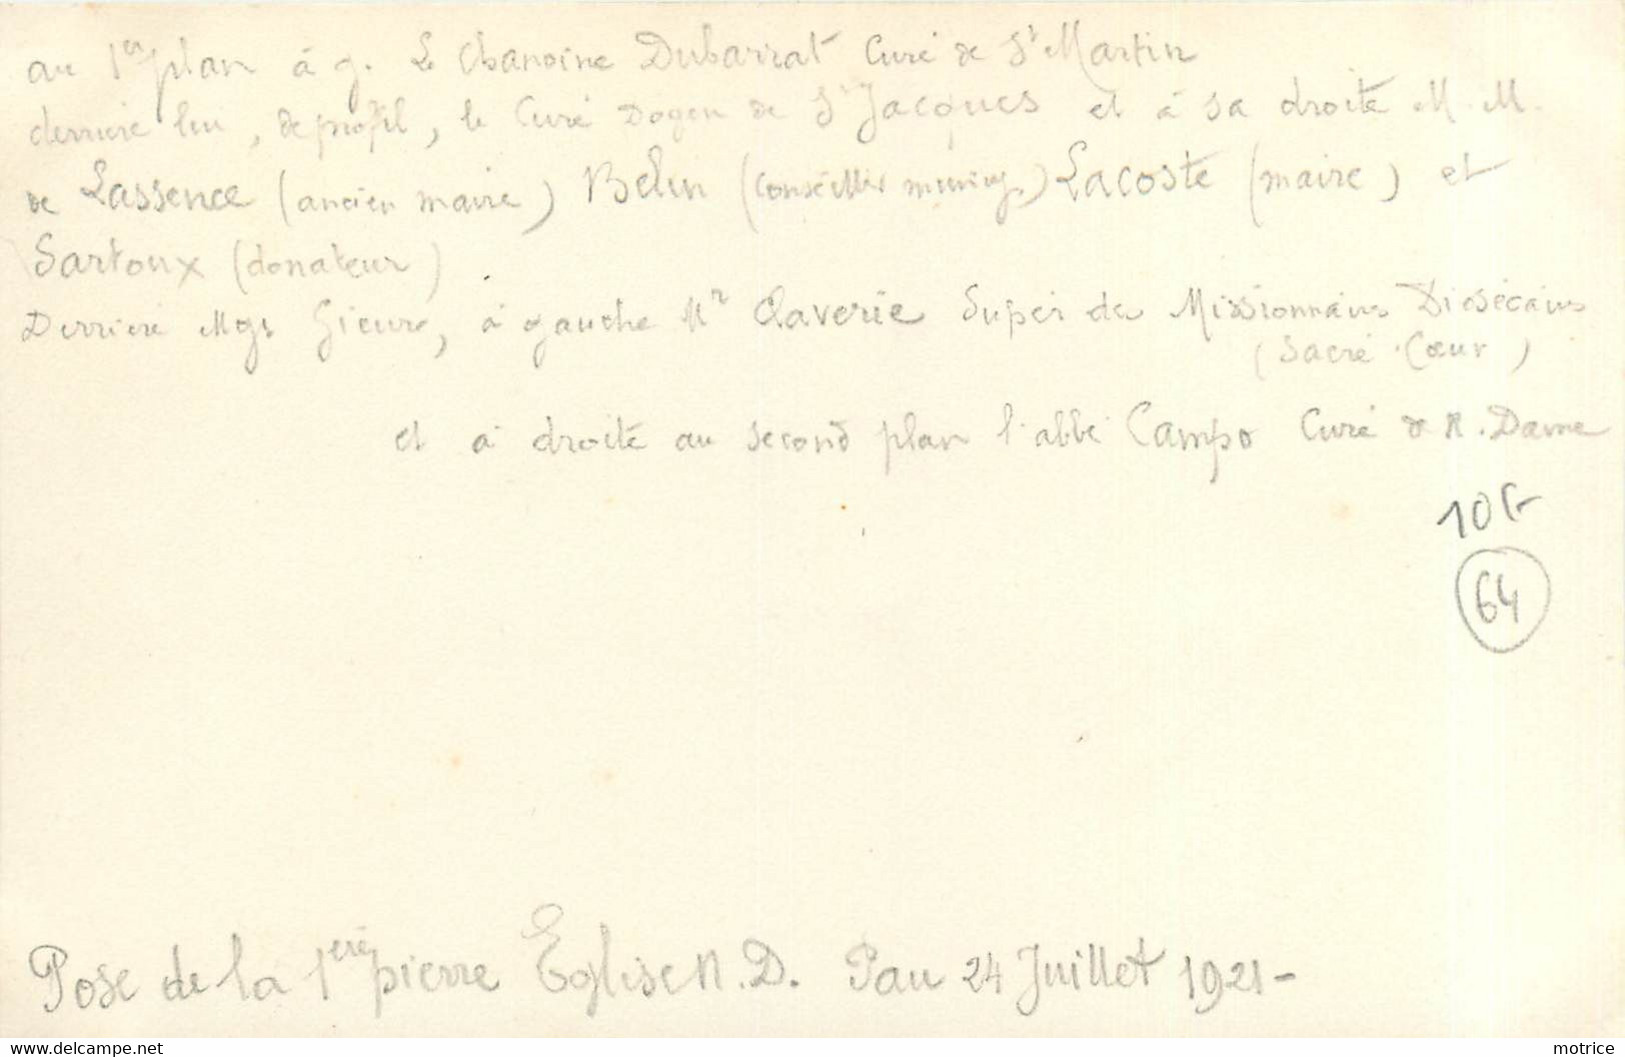 au 1er plan à g. Le Chanoine Dubarrat Curé de St Martin
derriere lui, de profil, le Curé Doyen de St Jacques et à sa droite M.M.
de Lassence (ancien maire) Belin (conseiller municip.) Lacoste (maire) et
Sartoux (donateur)
Derriere Mgr Gieure, à gauche Mr Laverie Super des Missionnaires Diocécains
(Sacré-Cœur)
et à droite au second plan l'abbé Campo Curé de N. Dame
10G
64
Pose de la 1ère pierre Eglise N.D. Pau 24 Juillet 1921-
https://www.delcampe.net
motrice